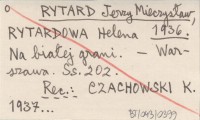 RYTARD Jerzy Mieczysław,
RYTARDOWA Helena 1936.
Na białej grani. — War-
szawa. Ss. 202.
Rec.: CZACHOWSKI K.
1937...